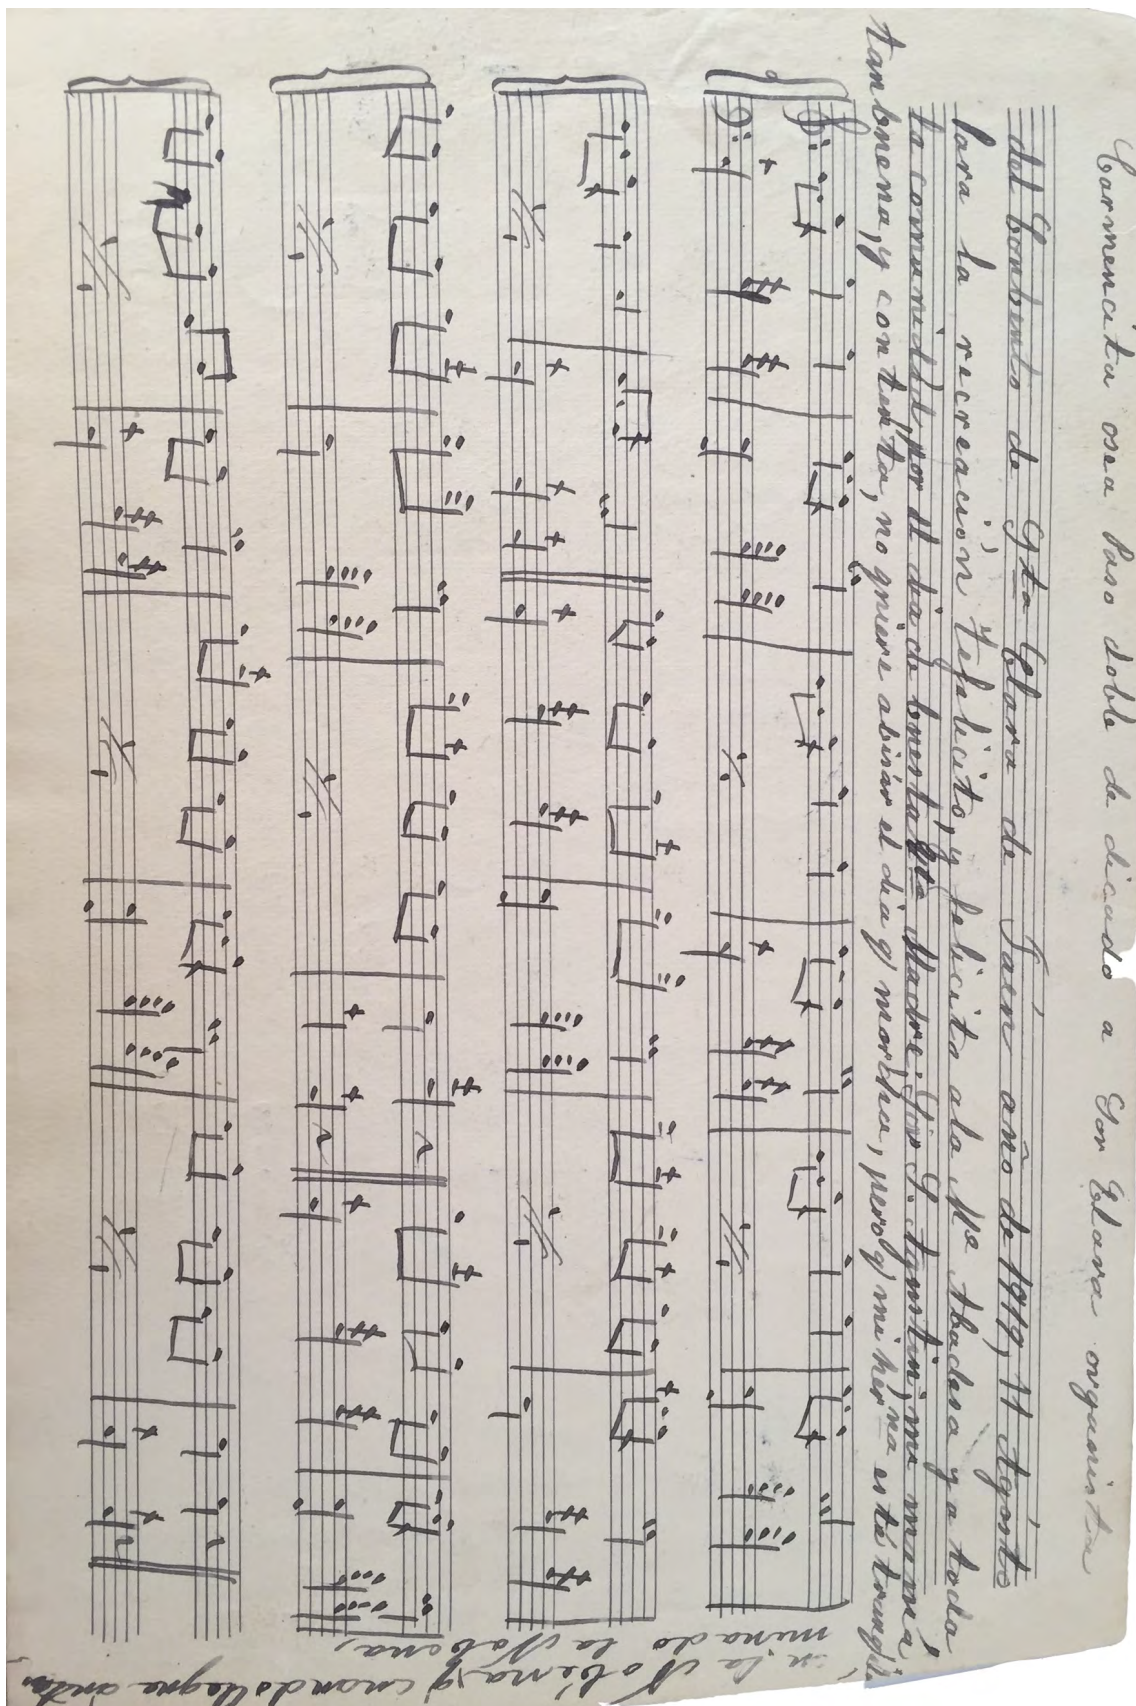 Carmencita osea Paso doble de dicado a Sor Clara organista
del Conbento de Sta Clara de Jaén año de 1919, 11 Agosto
Para la recreación, Te felicito, y felicita ala Me Abadesa y a toda
la comunidad, por el dia de bnestra Sta Madre, Sor S. Agustin, mi mamá
tanbuena, y contenta, no quiere abisár el dia q marcha, pero q mi hermna está tranqui
minado la Nobena,
in la Nobena, y cuando llegue